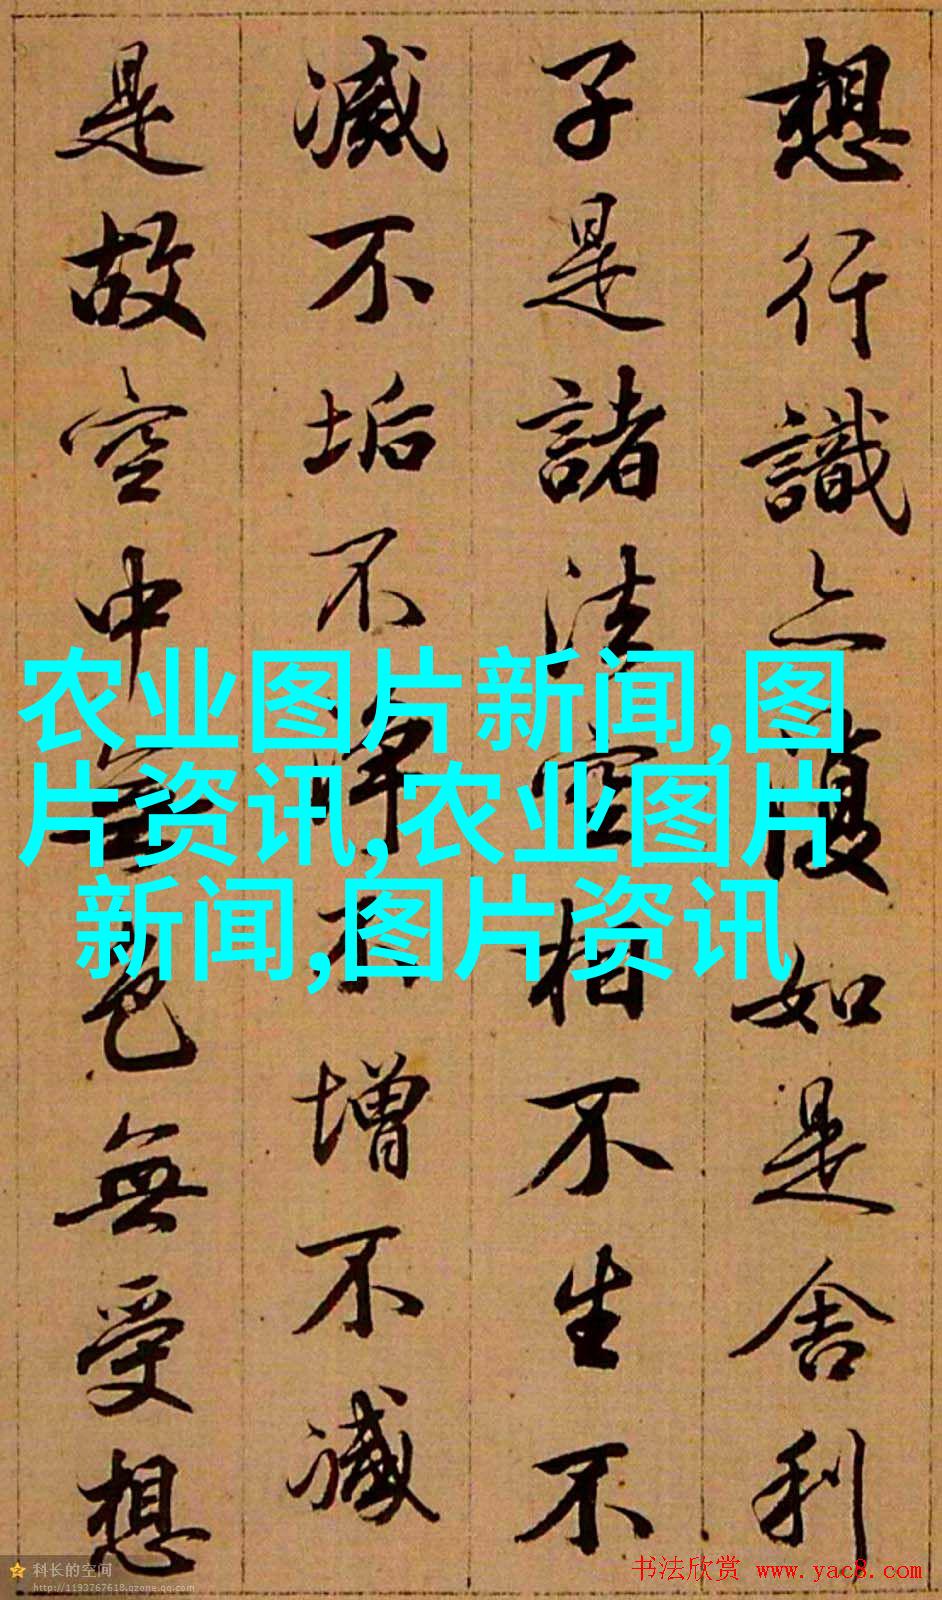 想行識亦復如是舍利
子是諸法空相不生不
滅不垢不淨不增不減
是故空中無色無受想
农业图片新闻,图
片资讯,农业图片
新闻,图片资讯
科长的空间
http://1193767618.qzone.qq.com
书法欣赏 www.yac8.com